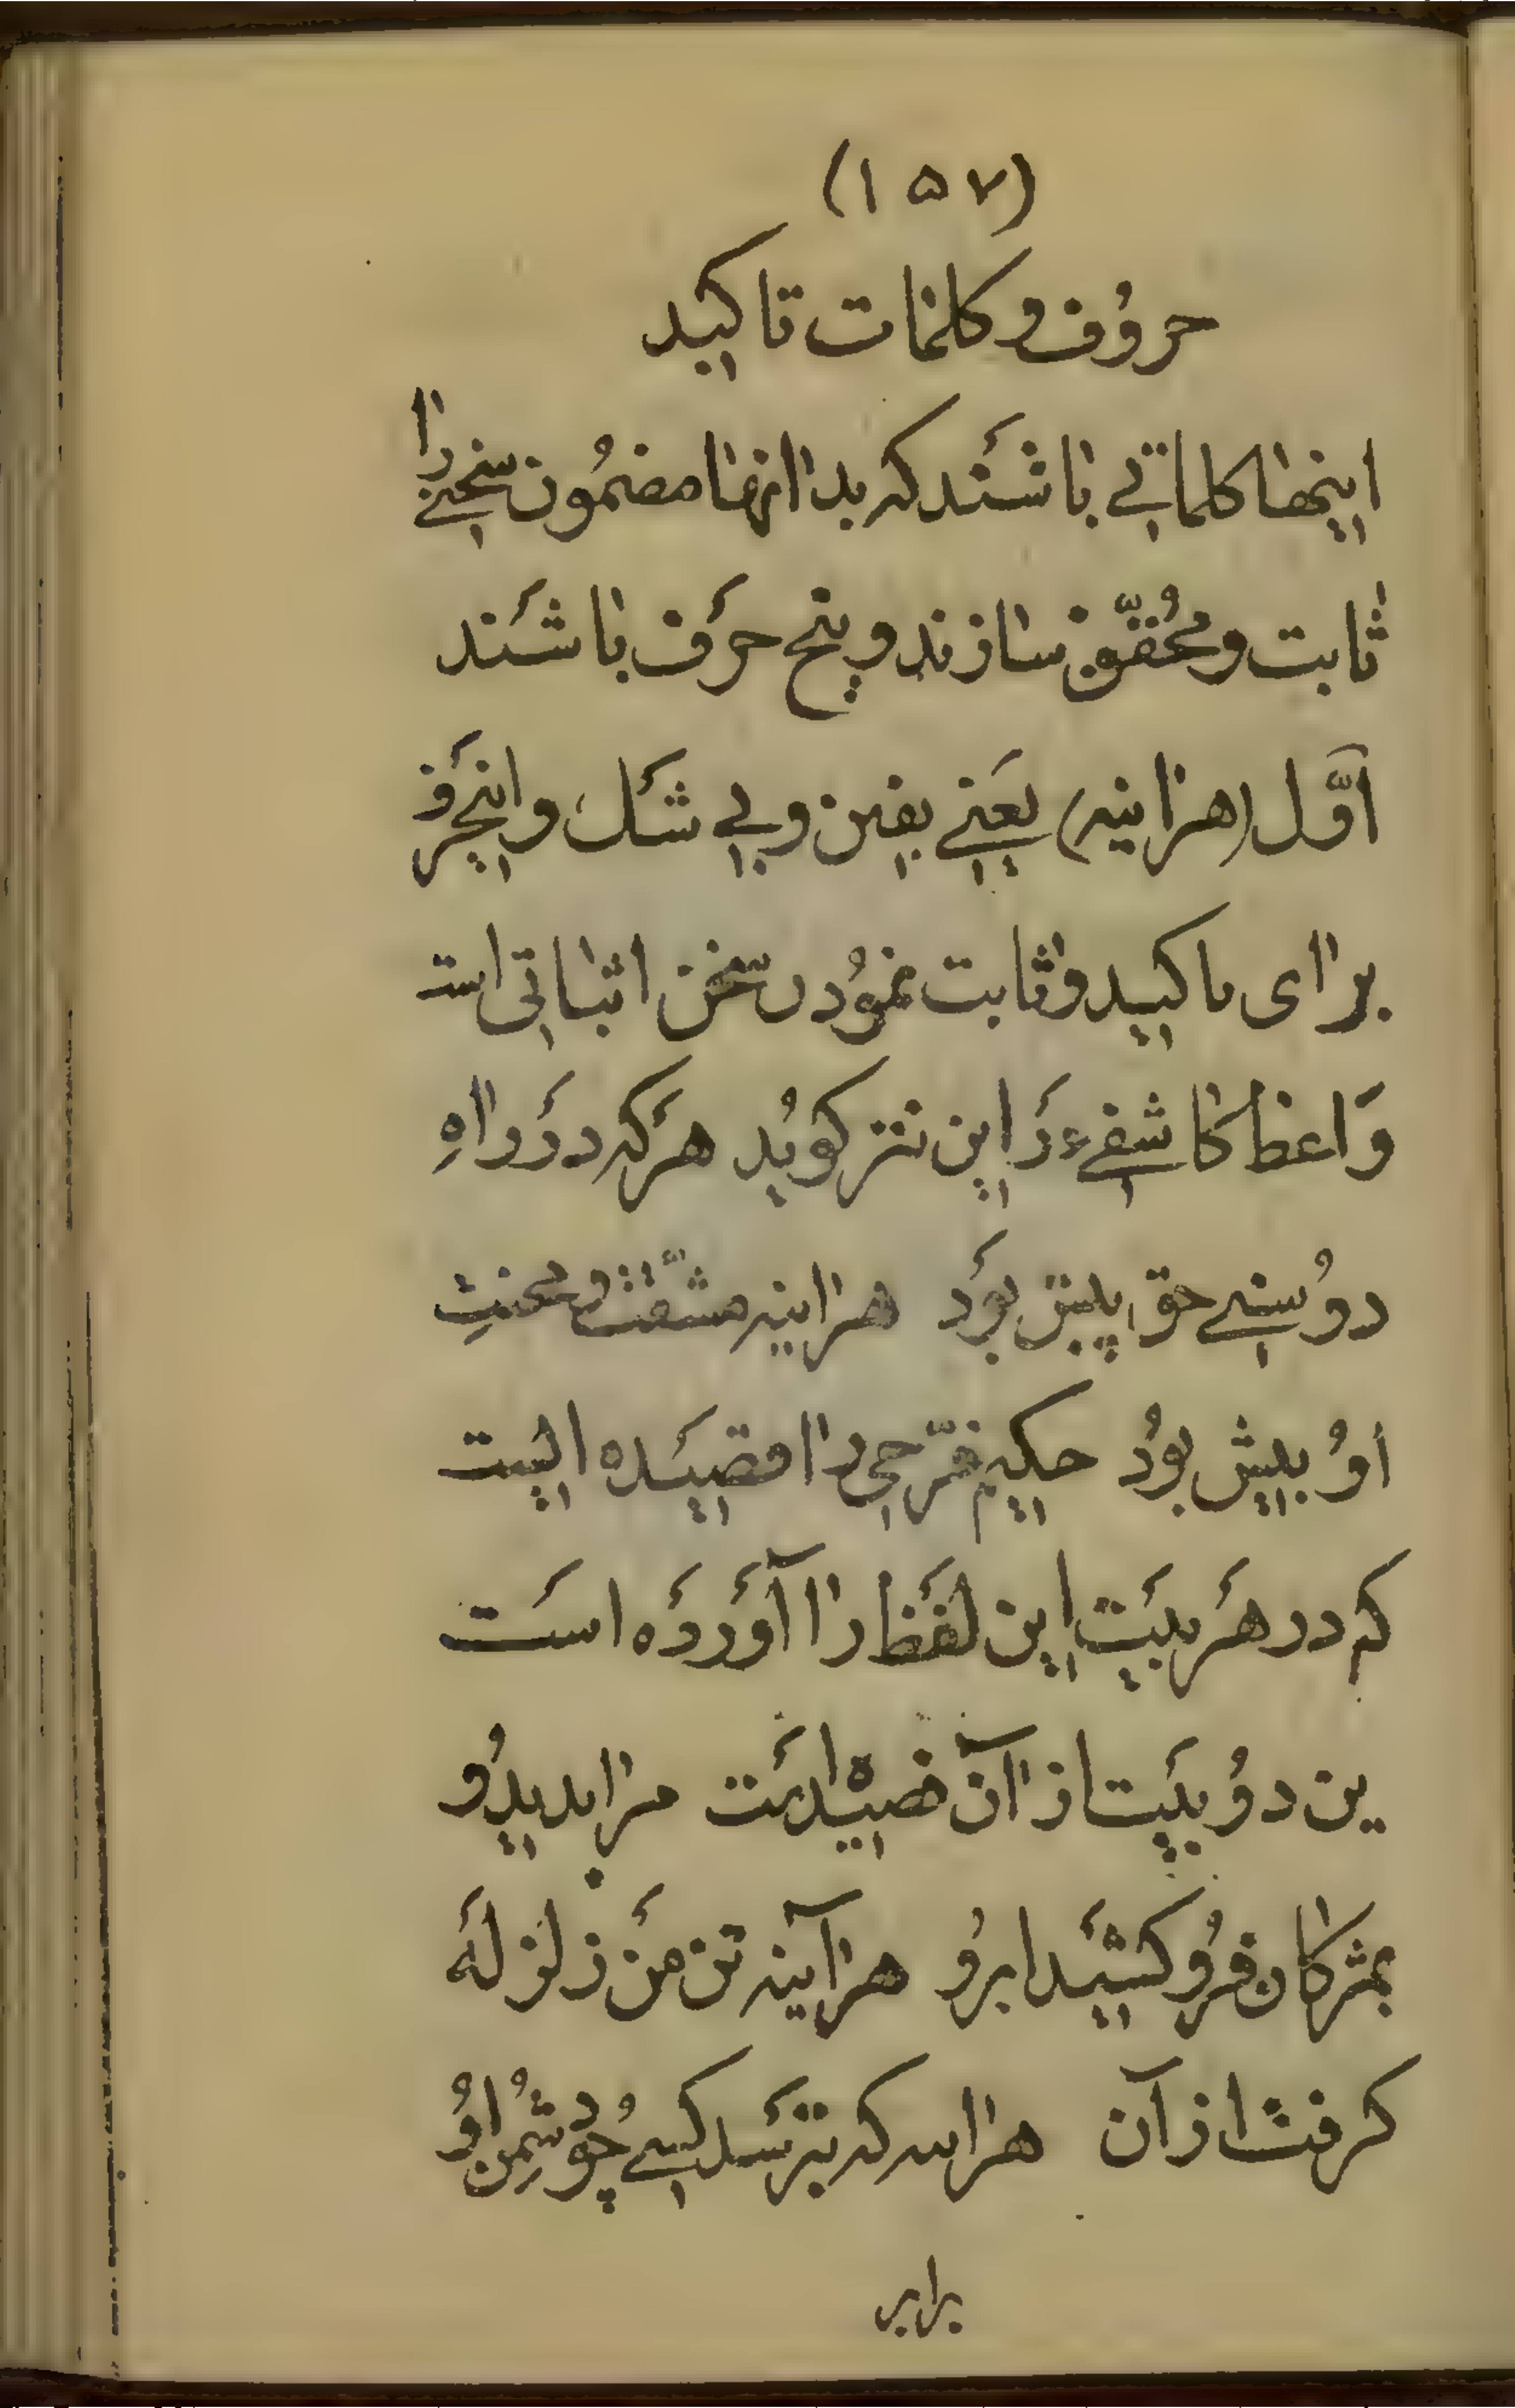 (۱۵۷)
حروُف و کلمات تاکید
اینها کلماتی باشَند که بدانها مضمُون سخنی را
ثابت و محُقّق سازند و پنج حرَف باشَند
اوَّل (هراینه) یَعنی یقین و بی شَک و اینحَرف
برای تاکید و ثابت نموُدن سخن اثباتی است
وَاعظ کاشفی دَر این نثر کویُد هَرکه دَر راهِ
دوُستی حق پیش بوَد هراینه مشقّت و محنتِ
اوُ بیش بوُد حکیم فرّخی را قصیَده ایست
که در هَر بیَت این لفَظ را آوَردَه است
ین دوُ بیَت از آن قصیدَه است مرا بدیدُو
بمژکان فرُو کشیَد ابرُو هرآینه تن مَن زلزلَه
کرفت از آن هراینه که بترَسد کسی چُو دشمُنِ اوُ
برابر